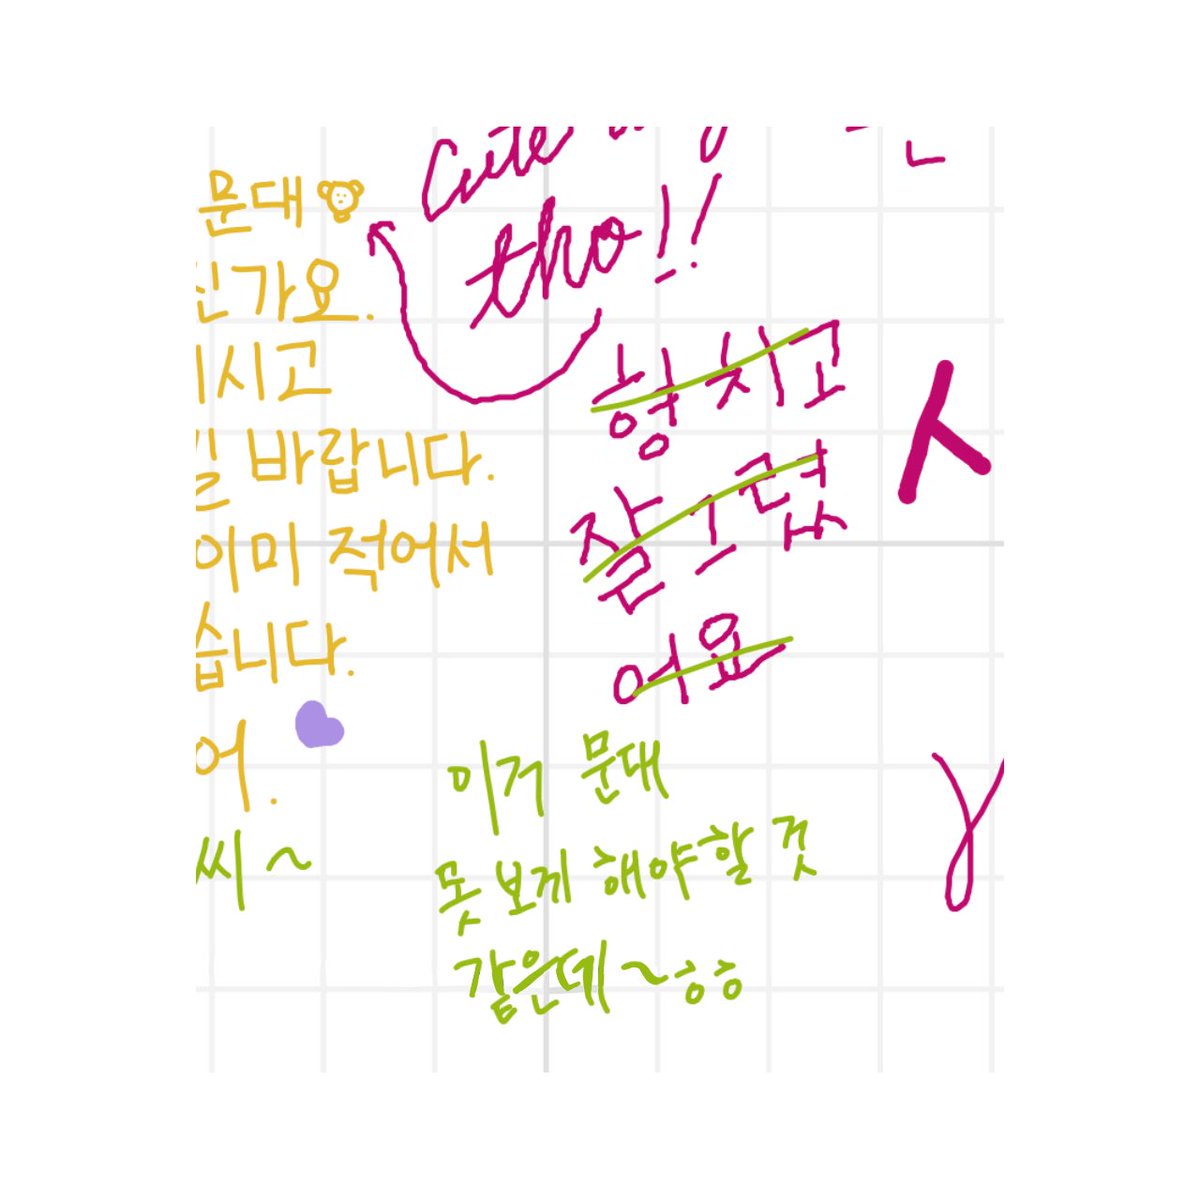 문대
가요.
시고
바랍니다.
이미 적어서
습니다.
어.
씨~
Cute
tho!!
형 치고
잘 그렸
어요
이거 문대
못 보게 해야 할 것
같은데~ㅎㅎ
ㅅ